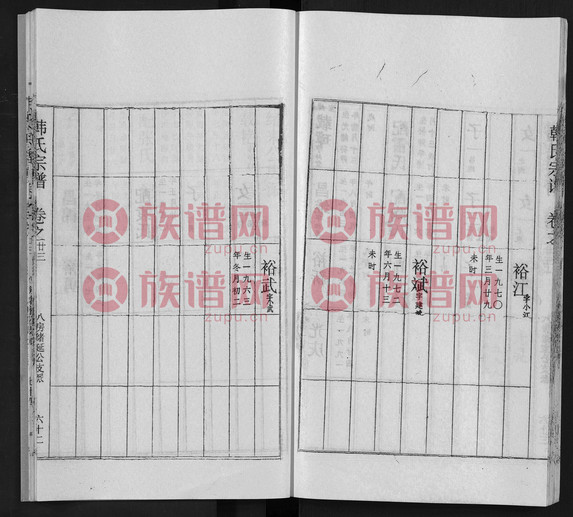 韩氏宗谱
卷之
裕江
字小江
生一九七〇
年三月廿九
未时
裕斌
字建斌
生一九七二
年六月十三
未时
裕武
字小武
生一九六三
年冬月初二
韩氏宗谱
卷之廿三
八房绪延公支系
六十二
族谱网
zupu.cn
族谱网
zupu.cn
族谱网
zupu.cn
族谱网
zupu.cn